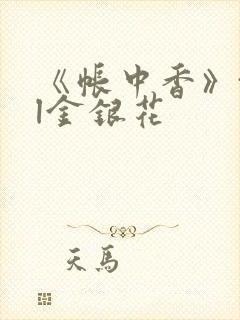 《帐中香》
|金银花
天马